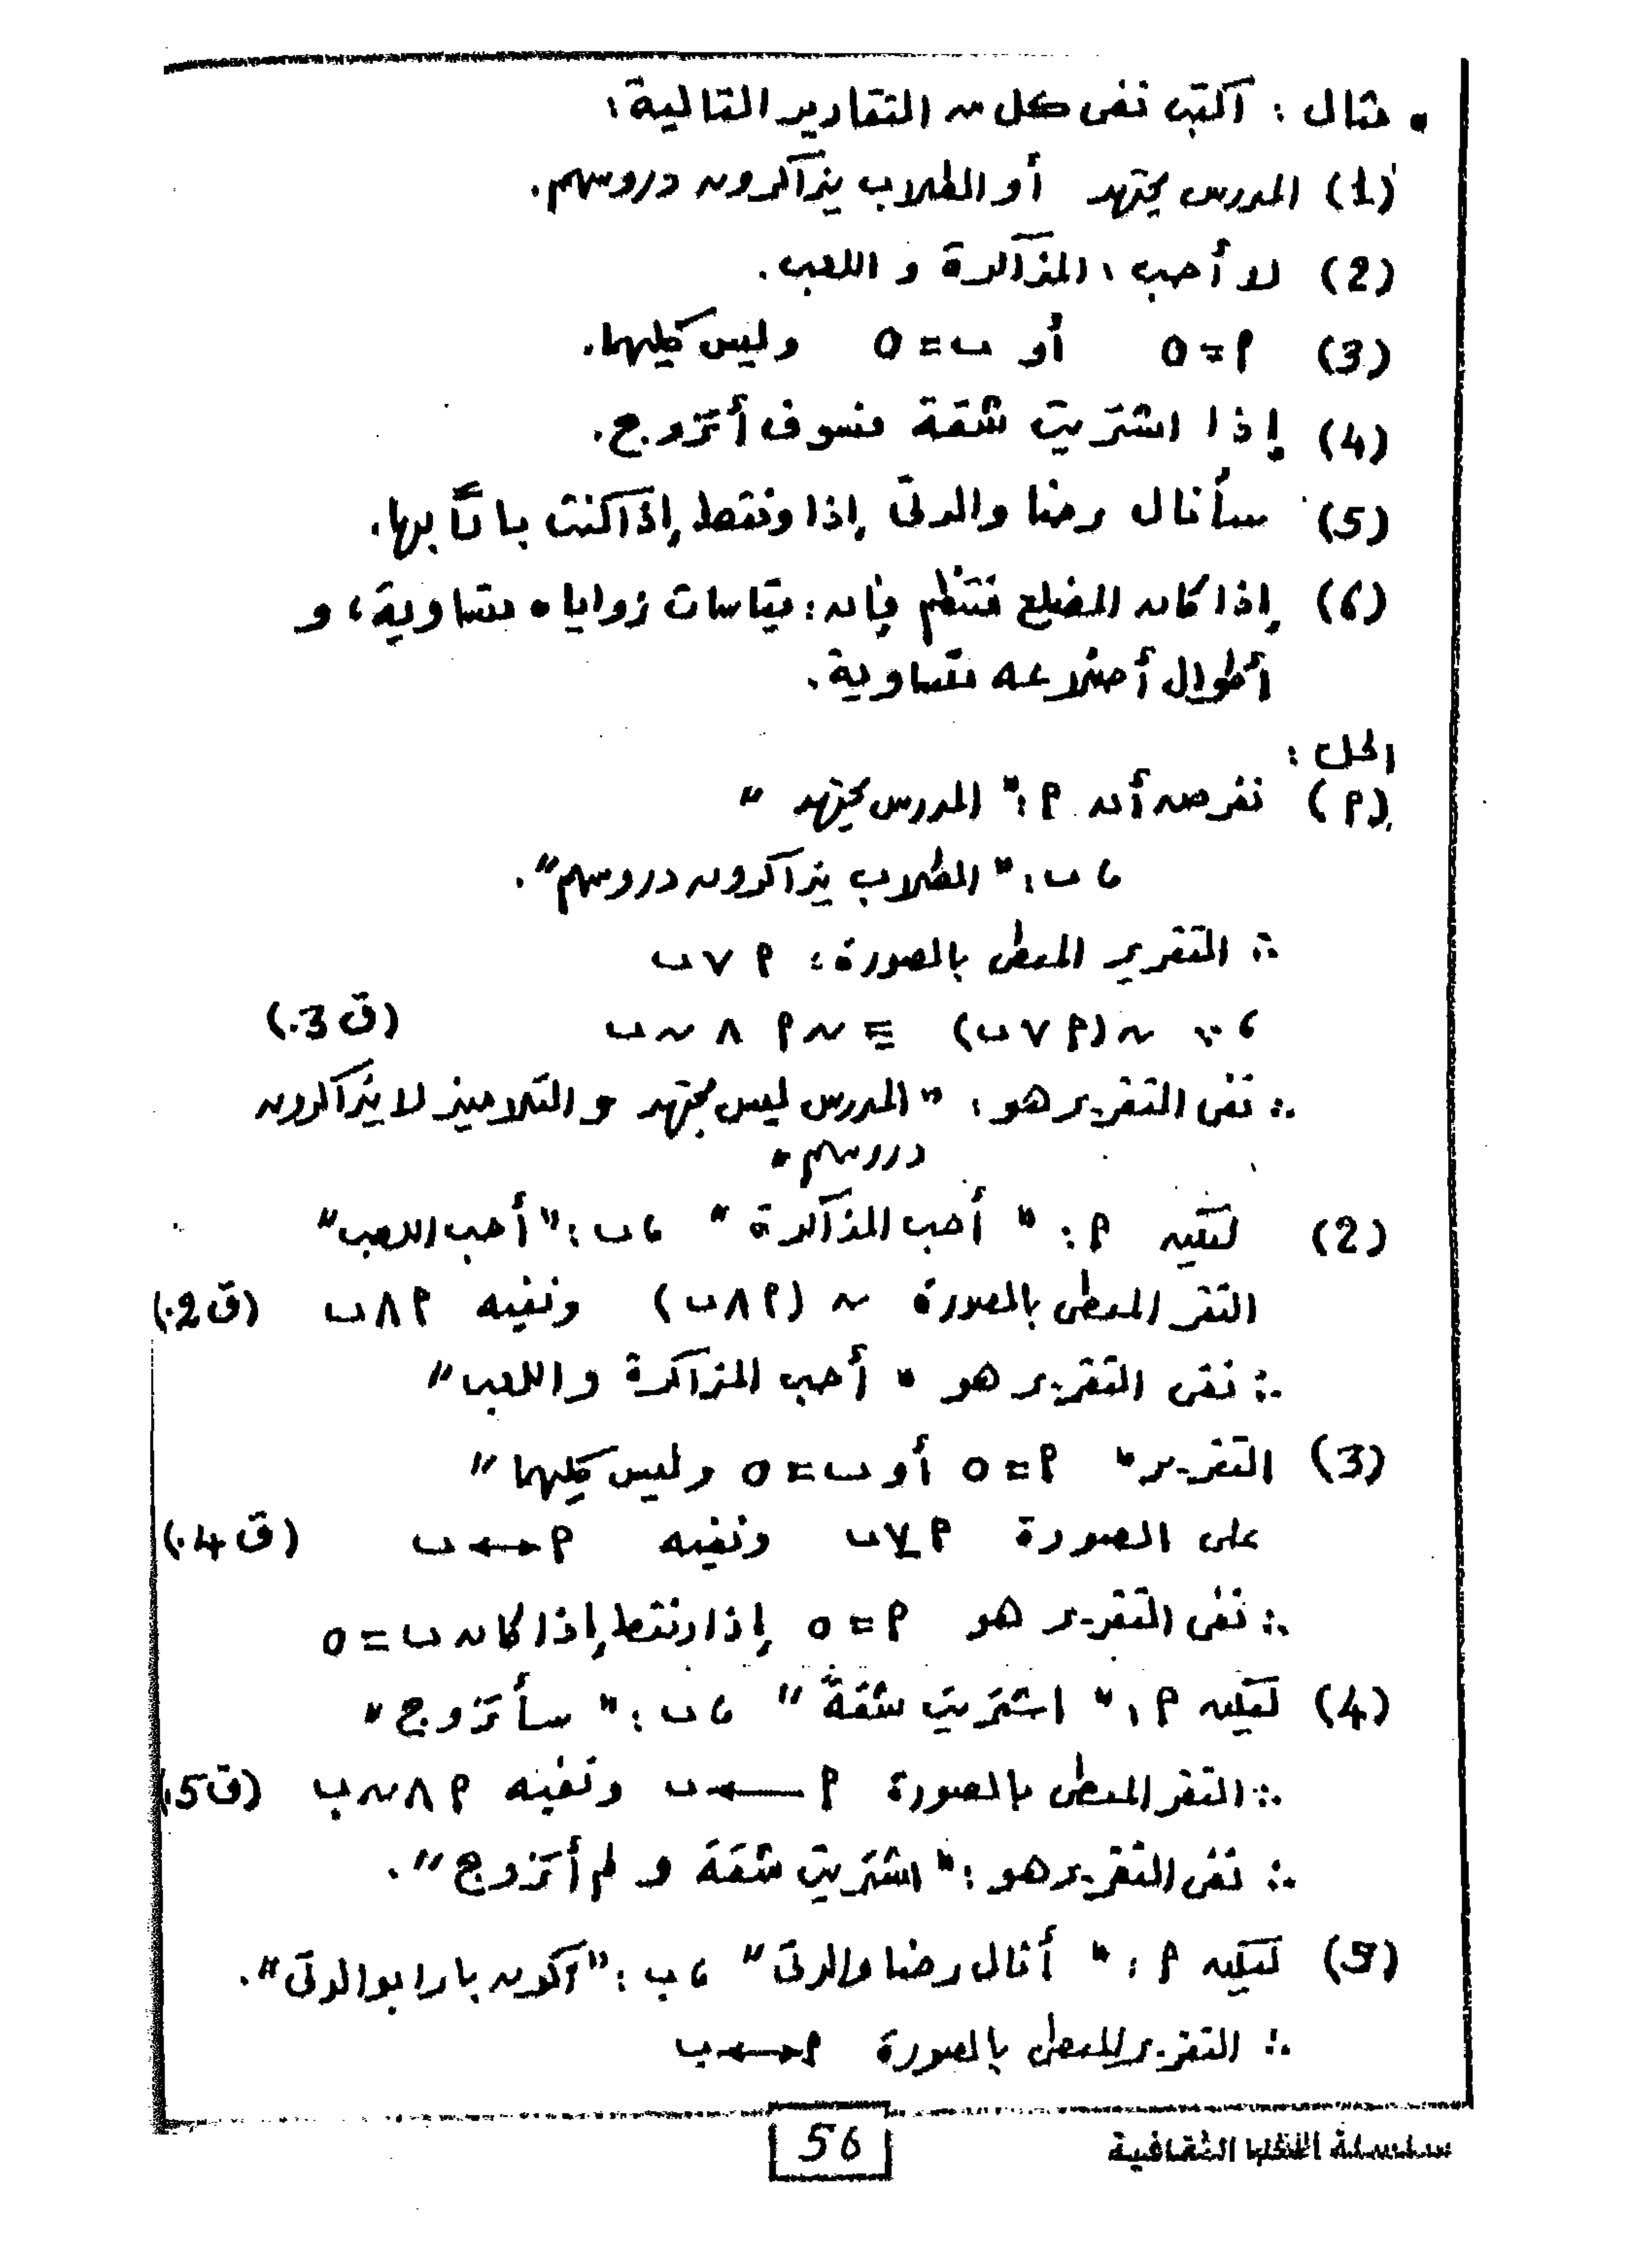 • مثال : أكتب نفى كل من التقارير التالية :
(1) المدرس مجتهد أو الطلاب يذاكرون دروسهم.
(2) لا أحب المذاكرة و اللعب.
(3) ٩ = ٥ أو ب = ٥ وليس كليهما.
(4) إذا اشتريت شقة فسوف أتزوج.
(5) سأنال رضا والدتى إذا وفقط إذا كنت بارًا بها.
(6) إذا كان المضلع منتظم فإن : قياسات زواياه متساوية ، و
أطوال أضلاعه متساوية.
الحل :
(٩) نفرض أن ٩ : " المدرس مجتهد "
، ب : " الطلاب يذاكرون دروسهم ".
∴ التقرير المعطى بالصورة : ٩ ∨ ب
، ∵ ~ (٩ ∨ ب) ≡ ~ ٩ ∧ ~ ب (ق 3.)
∴ نفى التقرير هو : " المدرس ليس مجتهد و التلاميذ لا يذاكرون
دروسهم .
(2) لتكن ٩ : " أحب المذاكرة " ، ب : " أحب اللعب "
التقر المعطى بالصورة ~ (٩ ∧ ب) ونفيه ٩ ∧ ب (ق 2.)
∴ نفى التقرير هو " أحب المذاكرة و اللعب "
(3) التقرير " ٩ = ٥ أو ب = ٥ وليس كليهما "
على الصورة ٩ ⊻ ب ونفيه ٩ ↔ ب (ق 4.)
∴ نفى التقرير هو ٩ = ٥ إذا وفقط إذا كان ب = ٥
(4) لتكن ٩ : " اشتريت شقة " ، ب : " سأتزوج "
∴ التقر المعطى بالصورة ٩ ← ب ونفيه ٩ ∧ ~ ب (ق 5.)
∴ نفى التقرير هو : " اشتريت شقة و لم أتزوج ".
(5) لتكن ٩ : " أنال رضا والدتى " ، ب : " أكون بارا بوالدتى ".
∴ التقرير المعطى بالصورة ٩ ↔ ب
سلسلة الثقافية
56